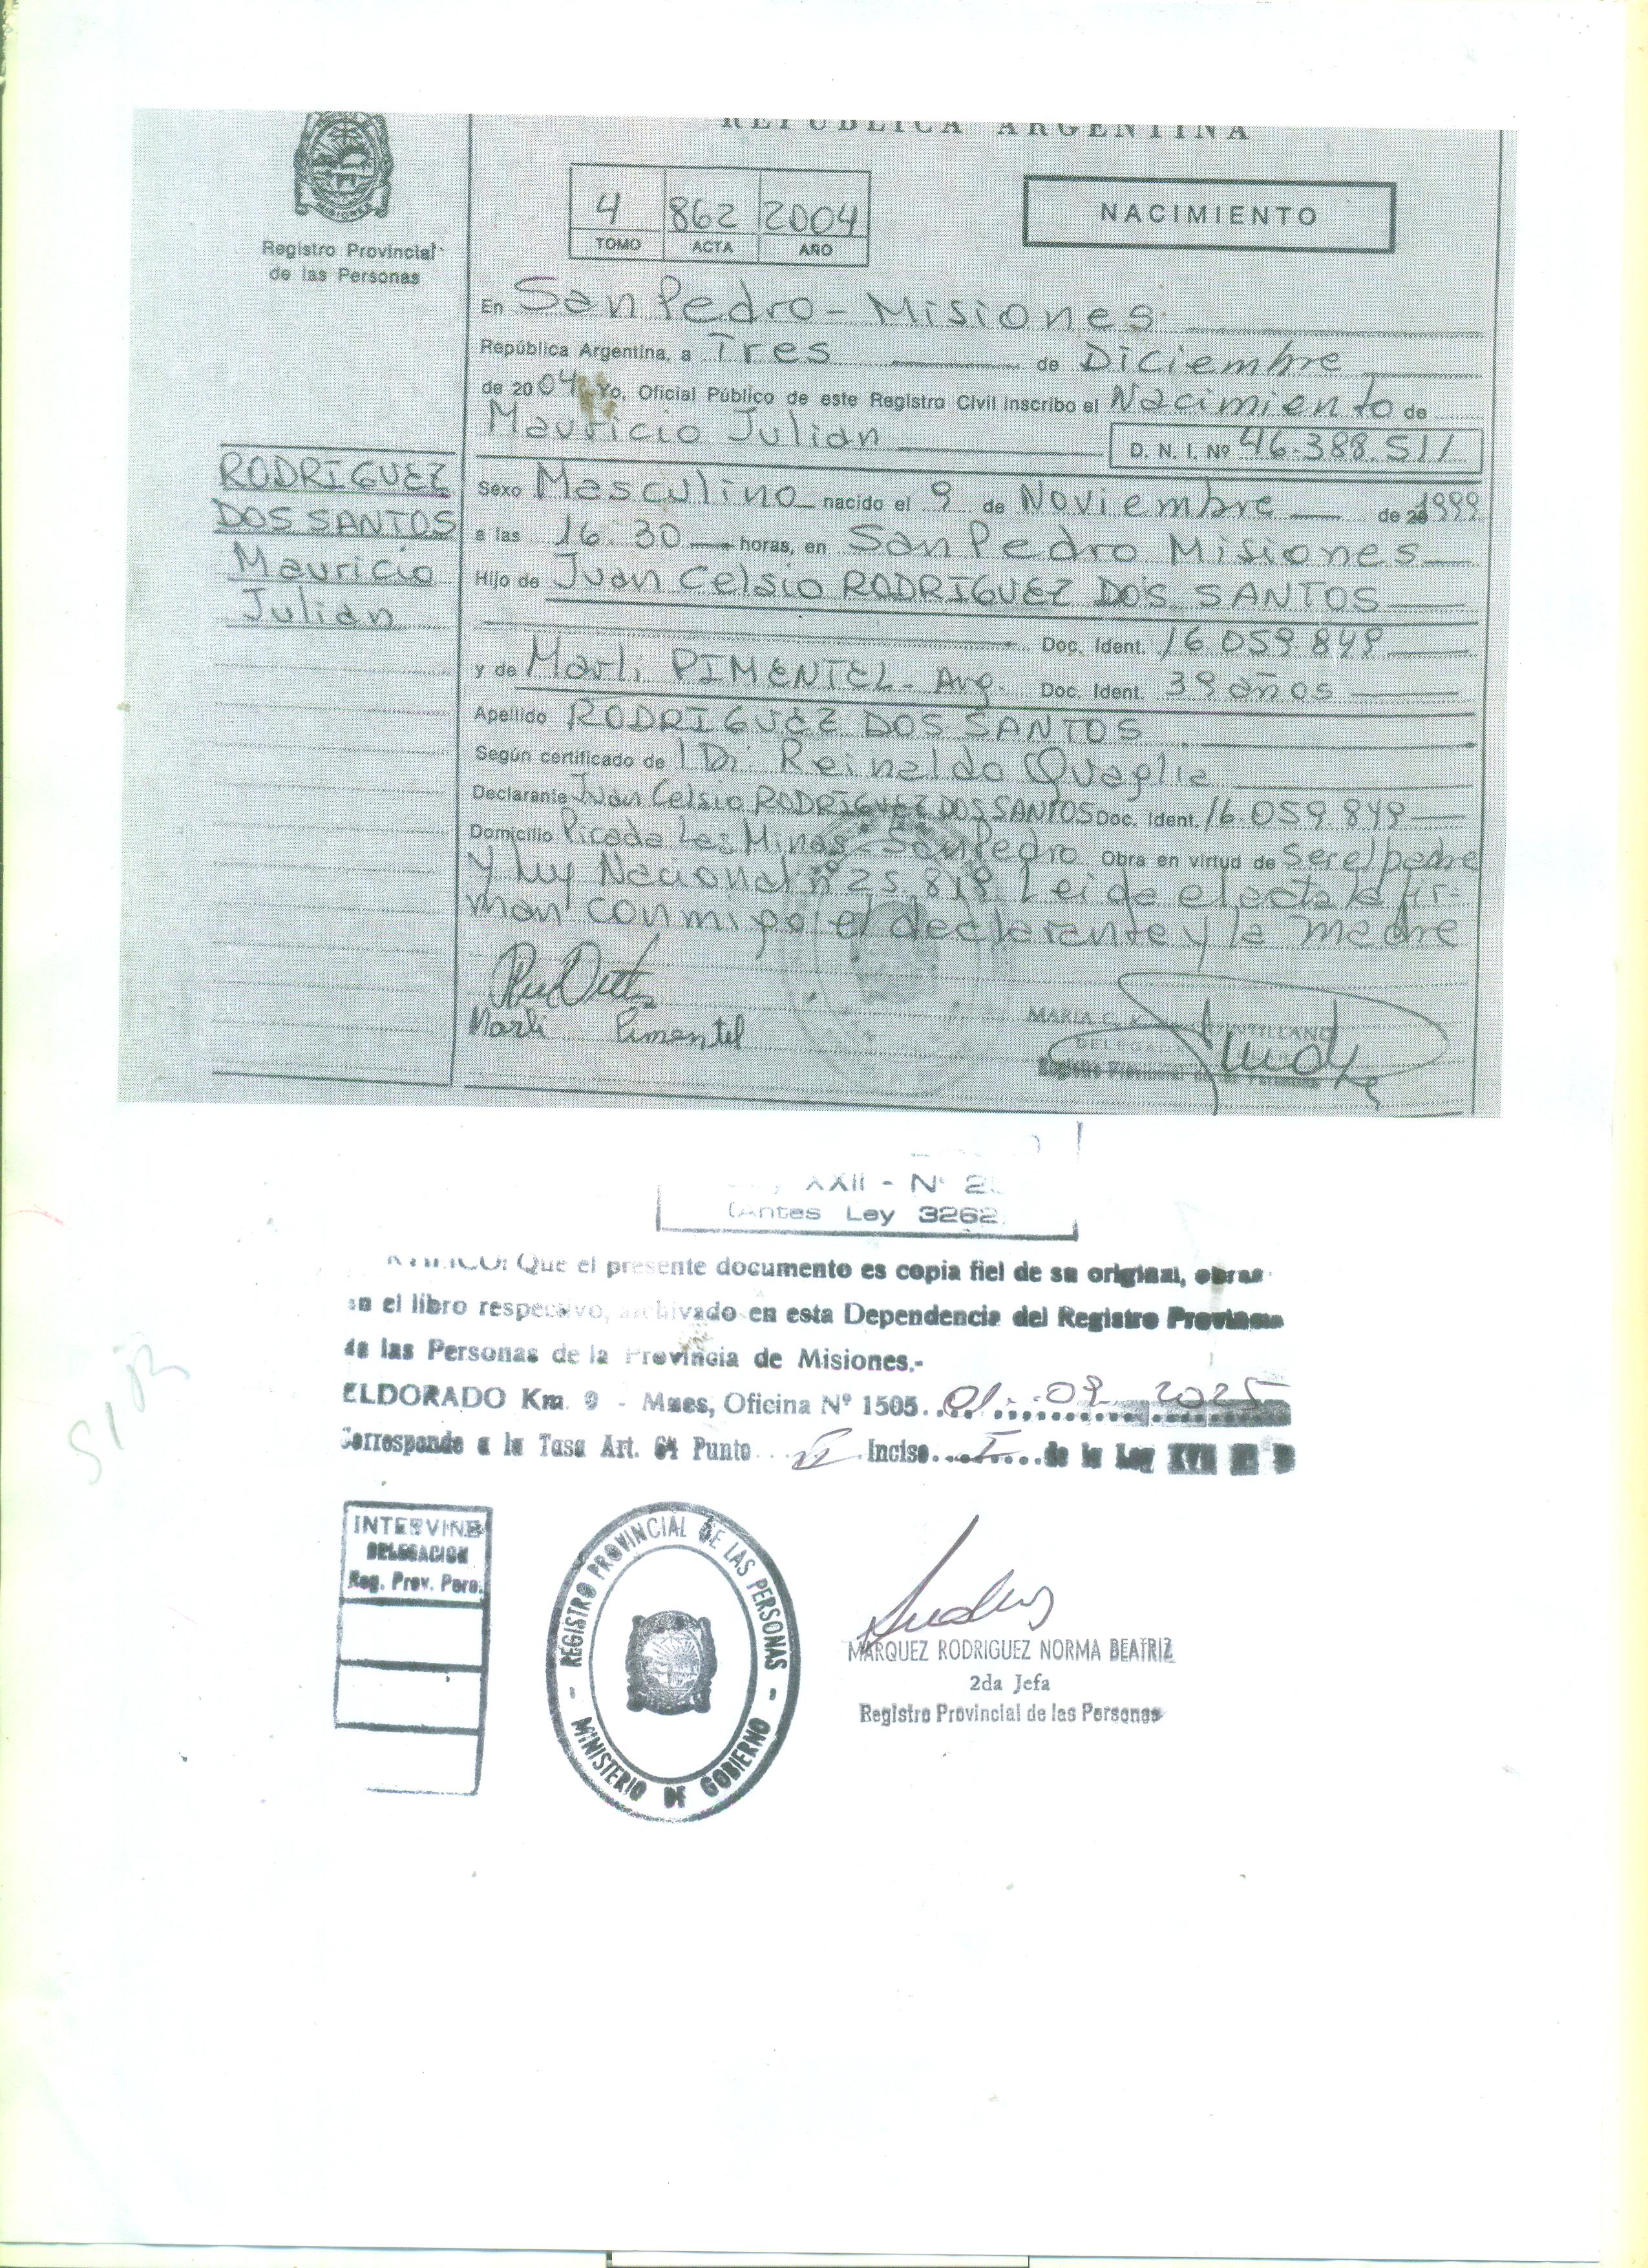 REPUBLICA ARGENTINA
MISIONES
Registro Provincial
de las Personas
4 862 2004
TOMO ACTA AÑO
NACIMIENTO
En San Pedro - Misiones
República Argentina, a Tres de Diciembre
de 2004 Yo, Oficial Público de este Registro Civil inscribo el Nacimiento de
Mauricio Julian D. N. I. Nº 46.388.511
RODRIGUEZ
DOS SANTOS
Mauricio
Julian
Sexo Masculino nacido el 9 de Noviembre de 1999
a las 16:30 horas, en San Pedro Misiones
Hijo de Juan Celsio RODRIGUEZ DOS SANTOS
Doc. Ident. 16.059.849
y de Marli PIMENTEL - Arg. Doc. Ident. 39 años
Apellido RODRIGUEZ DOS SANTOS
Según certificado de Dr. Reinaldo Quaglia
Declarante Juan Celsio RODRIGUEZ DOS SANTOS Doc. Ident. 16.059.849
Domicilio Picada Las Minas - San Pedro Obra en virtud de ser el padre
y Ley Nacional nº 25.818 Leida el acta la fir-
man conmigo el declarante y la madre
Marli Pimentel
MARIA C.
DELEGADA
Registro Provincial de las Personas
XXII - Nº 2
(Antes Ley 3262
Que el presente documento es copia fiel de su original, obras
en el libro respectivo, archivado en esta Dependencia del Registro Provincia
de las Personas de la Provincia de Misiones.-
ELDORADO Km. 9 - Mnes, Oficina Nº 1505. 01 09 2025
Corresponde a la Tasa Art. 64 Punto VI Inciso I de la Ley XVII
INTERVINE
DELEGACION
Reg. Prov. Pers.
REGISTRO PROVINCIAL DE LAS PERSONAS
- MINISTERIO DE GOBIERNO -
MARQUEZ RODRIGUEZ NORMA BEATRIZ
2da Jefa
Registro Provincial de las Personas